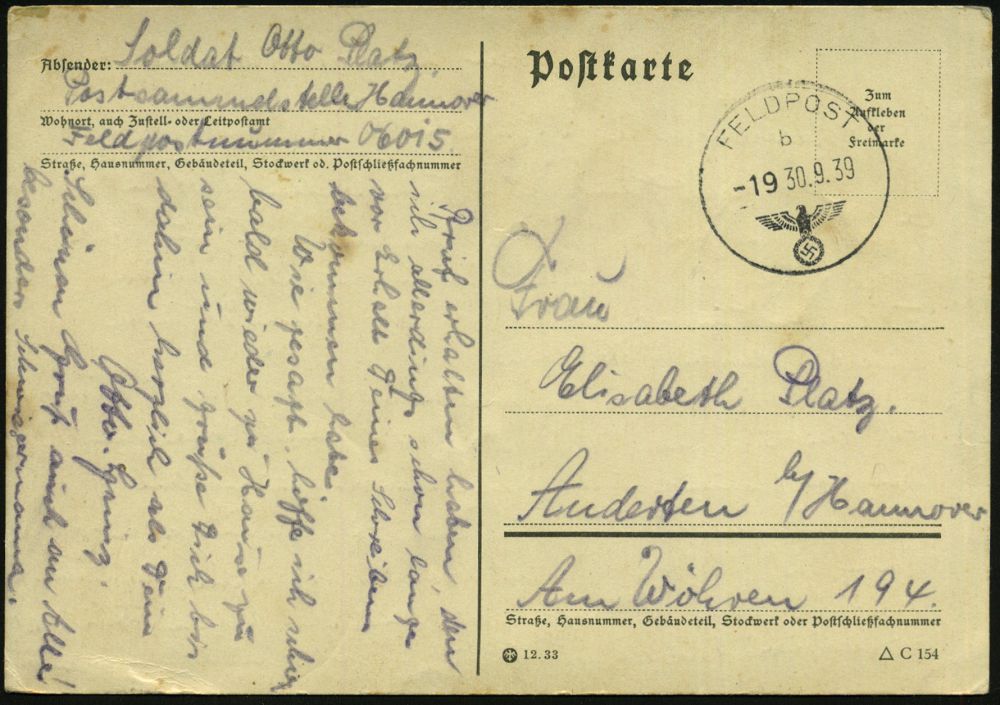 Absender: Soldat Otto Platz.
Postsammelstelle Hannover
Wohnort, auch Zustell- oder Leitpostamt
Feldpostnummer 06015.
Straße, Hausnummer, Gebäudeteil, Stockwerk od. Postschließfachnummer
Brief erhalten haben, den
ich allerdings schon lange
vor Erhalt Deines Schreibens
bekommen habe.
Wie gesagt, hoffe ich ruhig
bald wieder zu Hause zu
sein und grüße Dich bis
dahin herzlich als Dein
Otto.
Schönen Gruß auch an Elli!
besonders Schwiegermama.
Postkarte
Zum
Aufkleben
der
Freimarke
FELDPOST
b
-19 30.9.39
Frau
Elisabeth Platz.
Anderten b/Hannover
Am Wöhren 194.
Straße, Hausnummer, Gebäudeteil, Stockwerk oder Postschließfachnummer
12.33
C 154